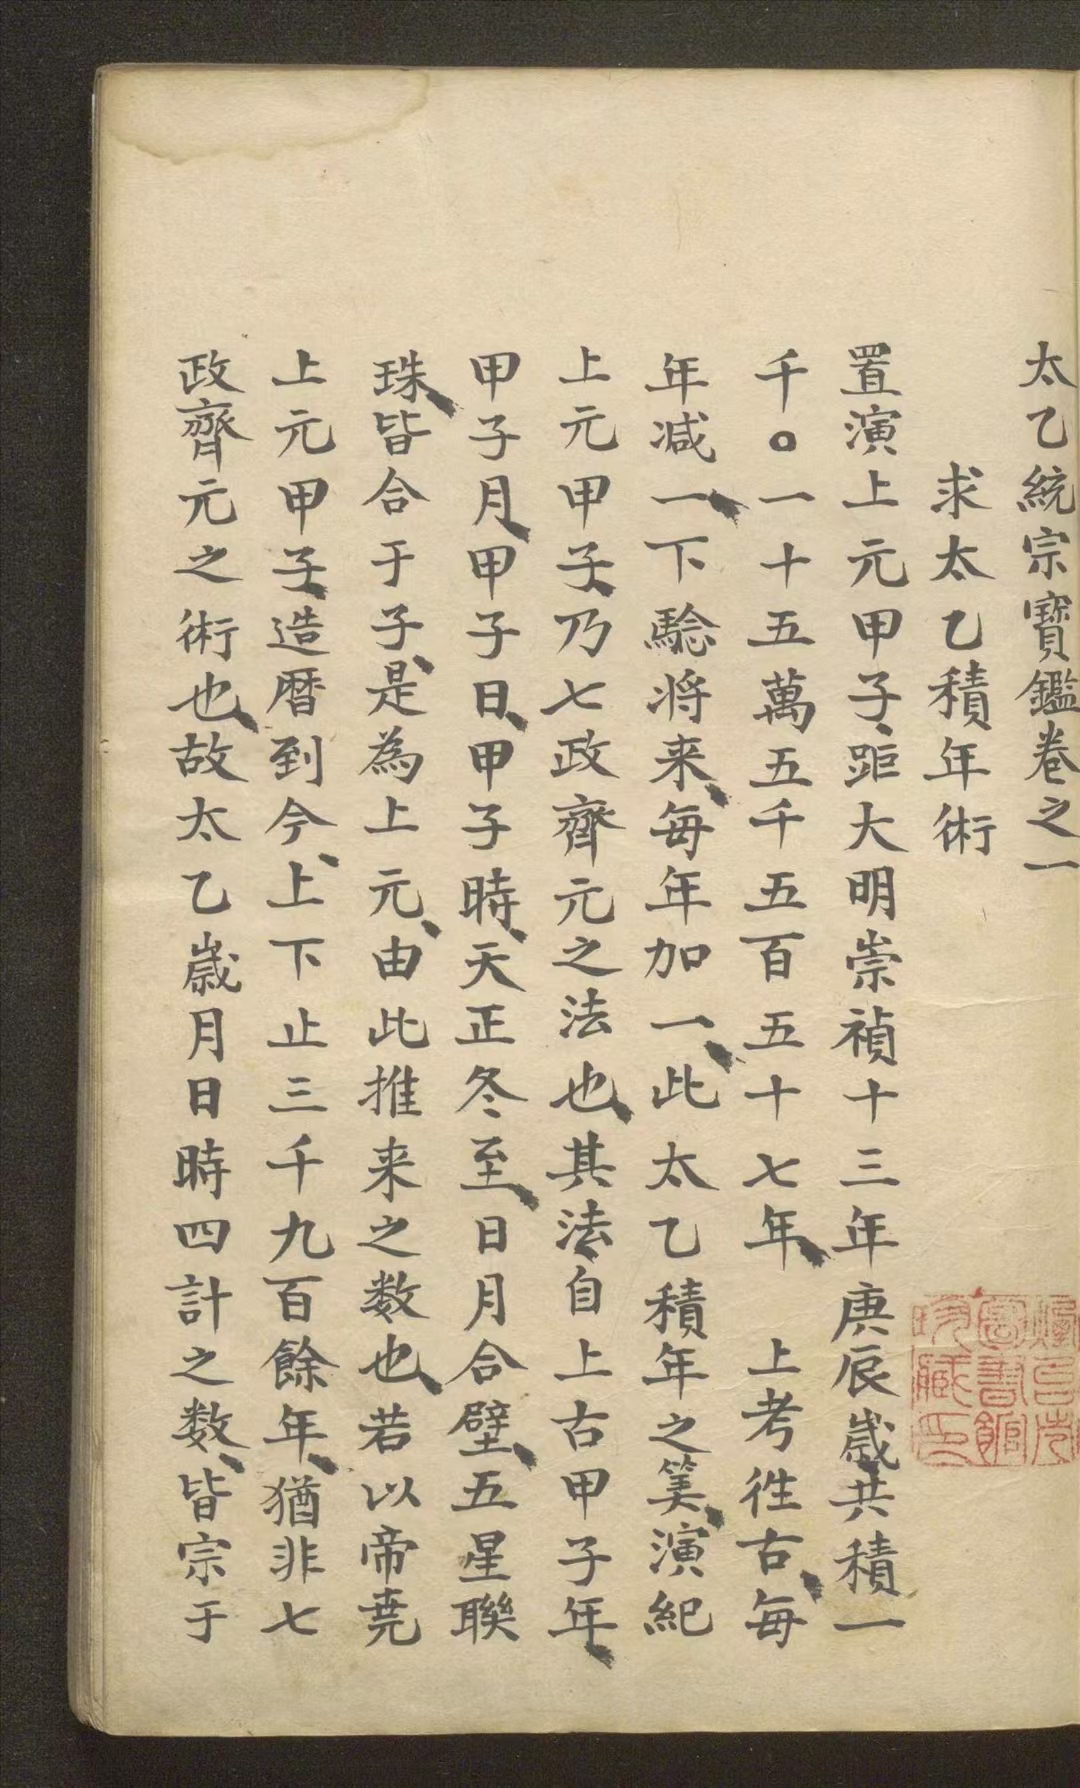 太乙統宗寶鑑卷之一
求太乙積年術
置演上元甲子、距大明崇禎十三年庚辰歲共積一
千〇一十五萬五千五百五十七年、上考徃古、每
年减一、下騐将来、每年加一、此太乙積年之筭、演紀
上元甲子、乃七政齊元之法也、其法自上古甲子年、
甲子月、甲子日、甲子時、天正冬至、日月合璧、五星聯
珠、皆合于子、是為上元、由此推来之数也、若以帝堯
上元甲子、造暦到今、上下止三千九百餘年、猶非七
政齊元之術也、故太乙歲月日時四計之数、皆宗于